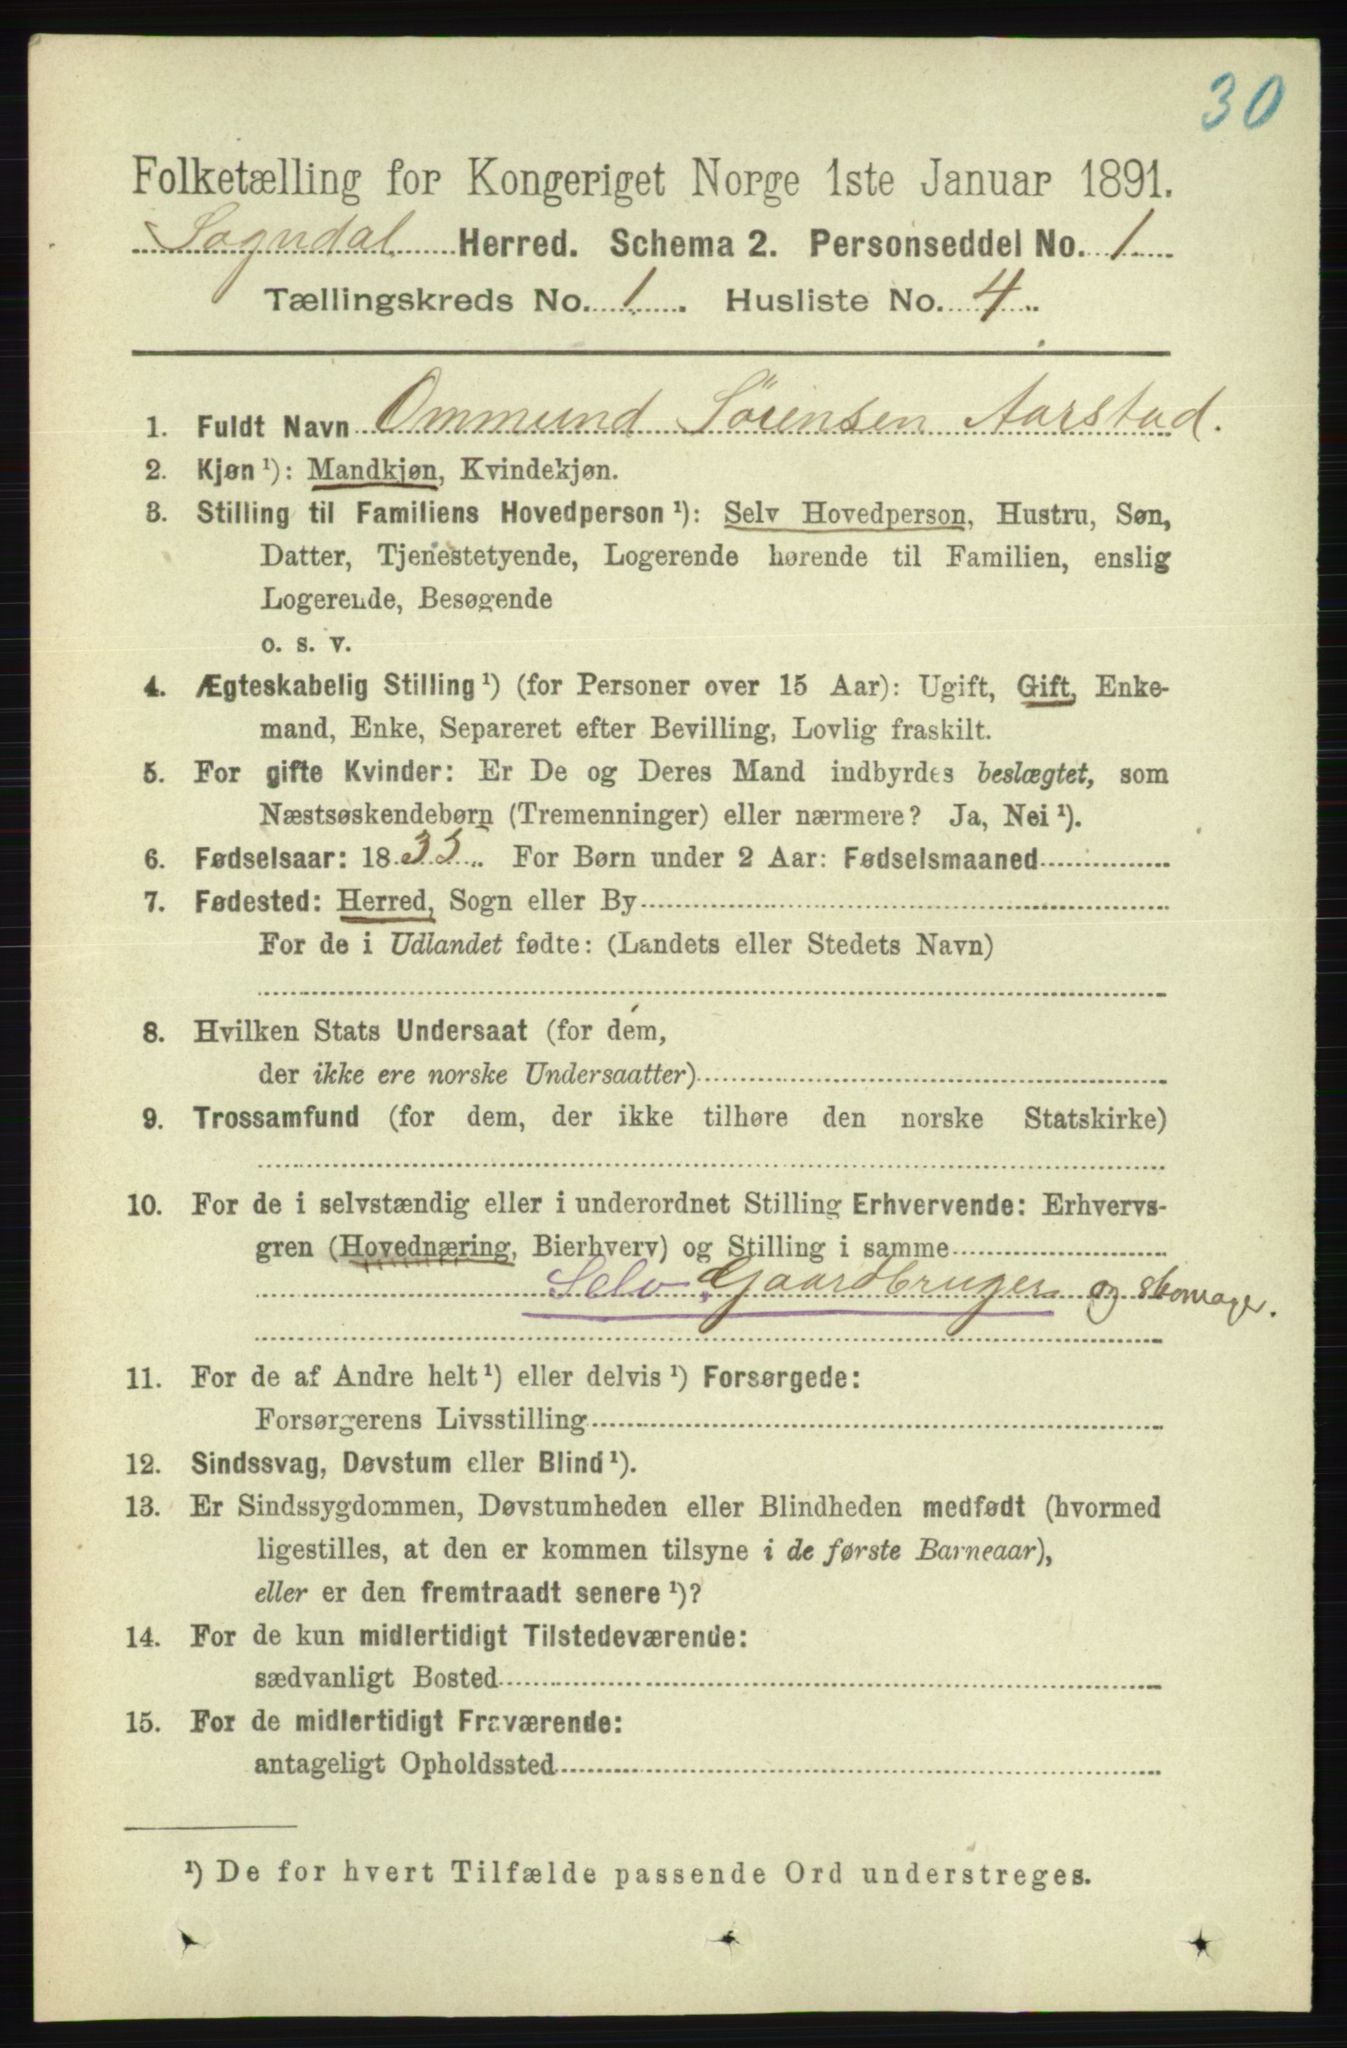 30
Folketælling for Kongeriget Norge 1ste Januar 1891.
Sogndal Herred. Schema 2. Personseddel No. 1
Tællingskreds No. 1. Husliste No. 4
1. Fuldt Navn Ommund Sörensen Aarstad.
2. Kjøn ¹): Mandkjøn, Kvindekjøn.
3. Stilling til Familiens Hovedperson ¹): Selv Hovedperson, Hustru, Søn,
Datter, Tjenestetyende, Logerende hørende til Familien, enslig
Logerende, Besøgende
o. s. v.
4. Ægteskabelig Stilling ¹) (for Personer over 15 Aar): Ugift, Gift, Enke-
mand, Enke, Separeret efter Bevilling, Lovlig fraskilt.
5. For gifte Kvinder: Er De og Deres Mand indbyrdes beslægtet, som
Næstsøskendebørn (Tremenninger) eller nærmere? Ja, Nei ¹).
6. Fødselsaar: 1835. For Børn under 2 Aar: Fødselsmaaned
7. Fødested: Herred, Sogn eller By
For de i Udlandet fødte: (Landets eller Stedets Navn)
8. Hvilken Stats Undersaat (for dem,
der ikke ere norske Undersaatter)
9. Trossamfund (for dem, der ikke tilhøre den norske Statskirke)
10. For de i selvstændig eller i underordnet Stilling Erhvervende: Erhvervs-
gren (Hovednæring, Bierhverv) og Stilling i samme
Selv. Gaardbruger og skomager.
11. For de af Andre helt ¹) eller delvis ¹) Forsørgede:
Forsørgerens Livsstilling
12. Sindssvag, Døvstum eller Blind ¹).
13. Er Sindssygdommen, Døvstumheden eller Blindheden medfødt (hvormed
ligestilles, at den er kommen tilsyne i de første Barneaar),
eller er den fremtraadt senere ¹)?
14. For de kun midlertidigt Tilstedeværende:
sædvanligt Bosted
15. For de midlertidigt Fraværende:
antageligt Opholdssted
¹) De for hvert Tilfælde passende Ord understreges.